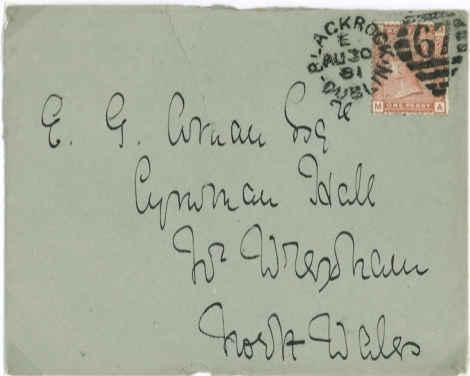 BLACKROCK
E
AU 30
81
DUBLIN
67
M ONE PENNY A
E. G. Esq
Hall
Nr Wrexham
North Wales